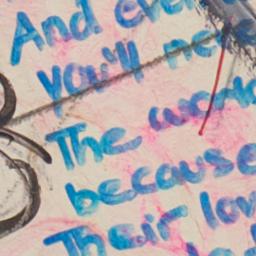 And even
you'll ne
The work
because
Their lov